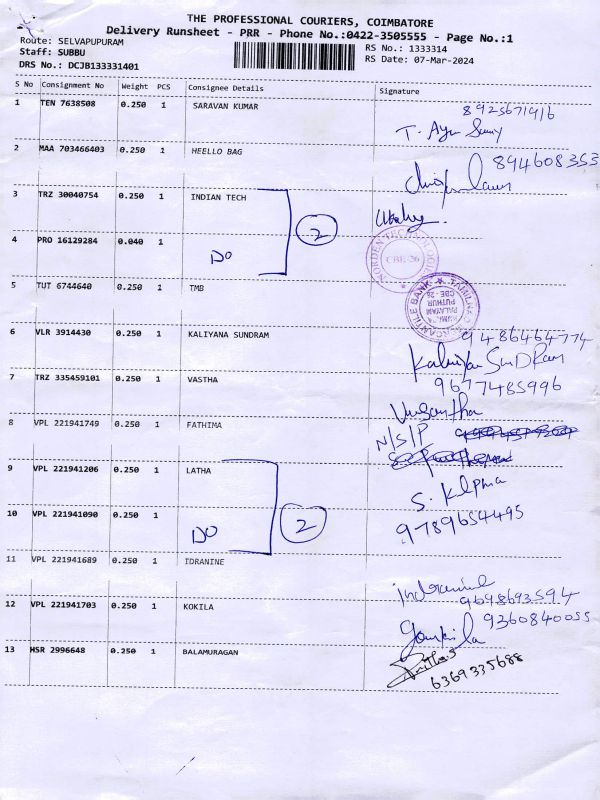 THE PROFESSIONAL COURIERS, COIMBATORE
Delivery Runsheet - PRR - Phone No.:0422-3505555 - Page No.:1
Route: SELVAPUPURAM
RS No.: 1333314
Staff: SUBBU
RS Date: 07-Mar-2024
DRS No.: DCJB133331401
S No Consignment No Weight PCS Consignee Details Signature
1 TEN 7638508 0.250 1 SARAVAN KUMAR
8925671916
2 MAA 703466403 0.250 1 HEELLO BAG
894608353
3 TRZ 30040754 0.250 1 INDIAN TECH
2
4 PRO 16129284 0.040 1 DO
CBE-26
5 TUT 6744640 0.250 1 TMB
CBE - 26
6 VLR 3914430 0.250 1 KALIYANA SUNDRAM
9486464774
Kaliyan SunDRam
7 TRZ 335459101 0.250 1 VASTHA
9677485996
Vasantha
8 VPL 221941749 0.250 1 FATHIMA
N/S/P
9 VPL 221941206 0.250 1 LATHA
S. Kalpna
2
10 VPL 221941090 0.250 1 DO
9789654495
11 VPL 221941689 0.250 1 IDRANINE
9698693594
12 VPL 221941703 0.250 1 KOKILA
9360840055
13 HSR 2996648 0.250 1 BALAMURAGAN
6369335688